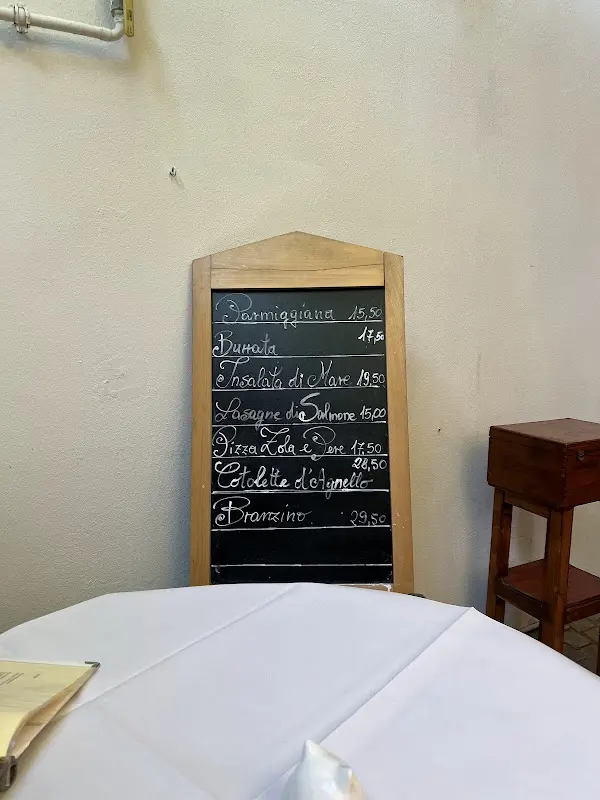 Parmiggiana 15,50
Burrata 17,50
Insalata di Mare 19,50
Lasagne di Salmone 15,00
Pizza Zola e Pere 17,50
Cotolette d'Agnello 28,50
Branzino 29,50